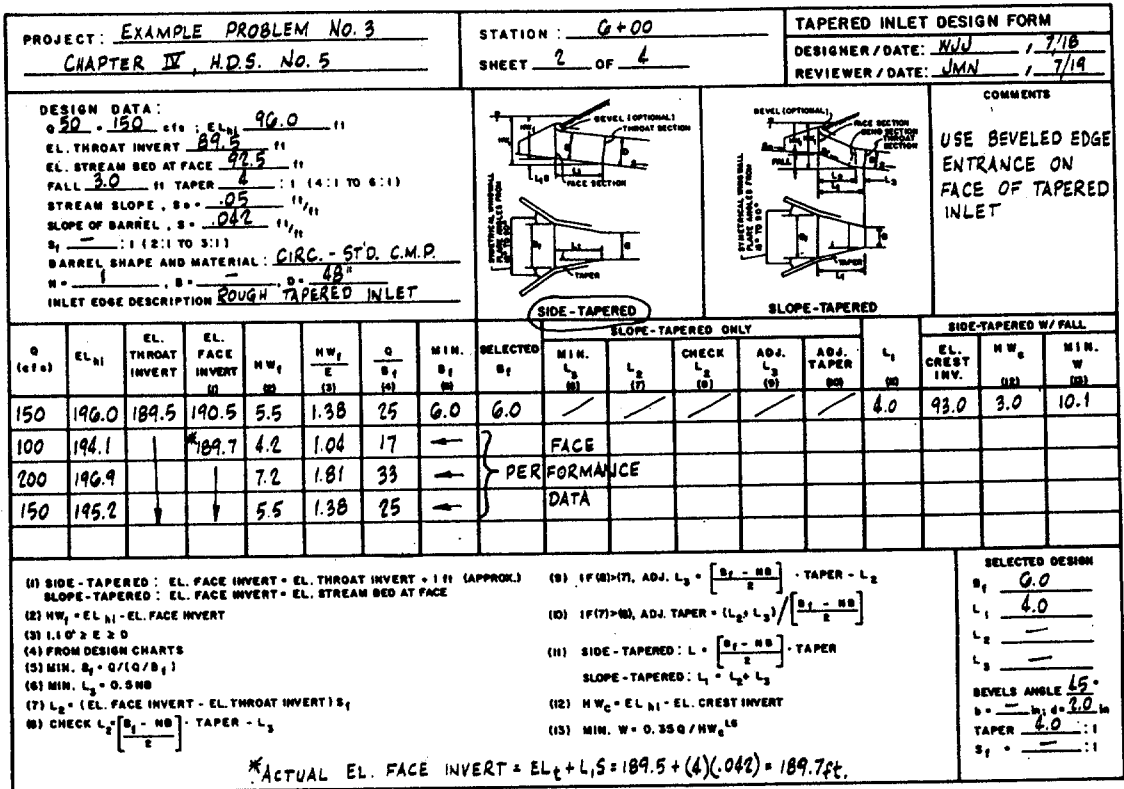 PROJECT: EXAMPLE PROBLEM NO. 3
CHAPTER IV, H.D.S. NO. 5
STATION: 6+00
SHEET 2 OF 4
TAPERED INLET DESIGN FORM
DESIGNER / DATE: WJJ / 7/18
REVIEWER / DATE: JMN / 7/19
DESIGN DATA:
Q 50 = 150 cfs ; EL hi 96.0 ft
EL. THROAT INVERT 89.5 ft
EL. STREAM BED AT FACE 92.5 ft
FALL 3.0 ft TAPER 4 :1 (4:1 TO 6:1)
STREAM SLOPE, So = .05 ft/ft
SLOPE OF BARREL, S = .042 ft/ft
Sf — :1 (2:1 TO 3:1)
BARREL SHAPE AND MATERIAL: CIRC. - ST'D. C.M.P.
N = 1, B = —, D = 48"
INLET EDGE DESCRIPTION ROUGH TAPERED INLET
BEVEL (OPTIONAL)
THROAT SECTION
FACE SECTION
SYMETRICAL WINGWALL
FLARE ANGLES FROM
TAPER
SIDE-TAPERED
BEVEL (OPTIONAL)
FACE SECTION
BEND SECTION
THROAT SECTION
FALL
SYMETRICAL WINGWALL
FLARE ANGLES FROM
TAPER
SLOPE-TAPERED
COMMENTS
USE BEVELED EDGE
ENTRANCE ON
FACE OF TAPERED
INLET
SLOPE-TAPERED ONLY
SIDE-TAPERED W/ FALL
Q (cfs) EL hi EL. THROAT INVERT EL. FACE INVERT (1) HWf (2) HWf/E (3) Q/Bf (4) MIN. Bf (5) SELECTED Bf MIN. L3 (6) L2 (7) CHECK L2 (8) ADJ. L3 (9) ADJ. TAPER (10) L1 (11) EL. CREST INV. HWc (12) MIN. W (13)
150 196.0 189.5 190.5 5.5 1.38 25 6.0 6.0 / / / / / 4.0 93.0 3.0 10.1
100 194.1 *189.7 4.2 1.04 17 ← FACE
200 196.9 7.2 1.81 33 ← PERFORMANCE
150 195.2 5.5 1.38 25 ← DATA
(1) SIDE-TAPERED: EL. FACE INVERT = EL. THROAT INVERT + 1 ft (APPROX.)
SLOPE-TAPERED: EL. FACE INVERT = EL. STREAM BED AT FACE
(2) HWf = EL hi - EL. FACE INVERT
(3) 1.1 D ≥ E ≥ D
(4) FROM DESIGN CHARTS
(5) MIN. Bf = Q/(Q/Bf)
(6) MIN. L3 = 0.5 NB
(7) L2 = (EL. FACE INVERT - EL. THROAT INVERT) Sf
(8) CHECK L2 = [Bf - NB / 2] · TAPER - L3
(9) IF (8)>(7), ADJ. L3 = [Bf - NB / 2] · TAPER - L2
(10) IF (7)>(8), ADJ. TAPER = (L2 + L3) / [Bf - NB / 2]
(11) SIDE-TAPERED: L = [Bf - NB / 2] · TAPER
SLOPE-TAPERED: L1 = L2 + L3
(12) HWc = EL hi - EL. CREST INVERT
(13) MIN. W = 0.35 Q / HWc 1.5
SELECTED DESIGN
Bf 6.0
L1 4.0
L2 —
L3 —
BEVELS ANGLE 45°
b = — in; d = 2.0 in
TAPER 4.0 :1
Sf = — :1
*ACTUAL EL. FACE INVERT = ELt + L1S = 189.5 + (4)(.042) = 189.7 ft.